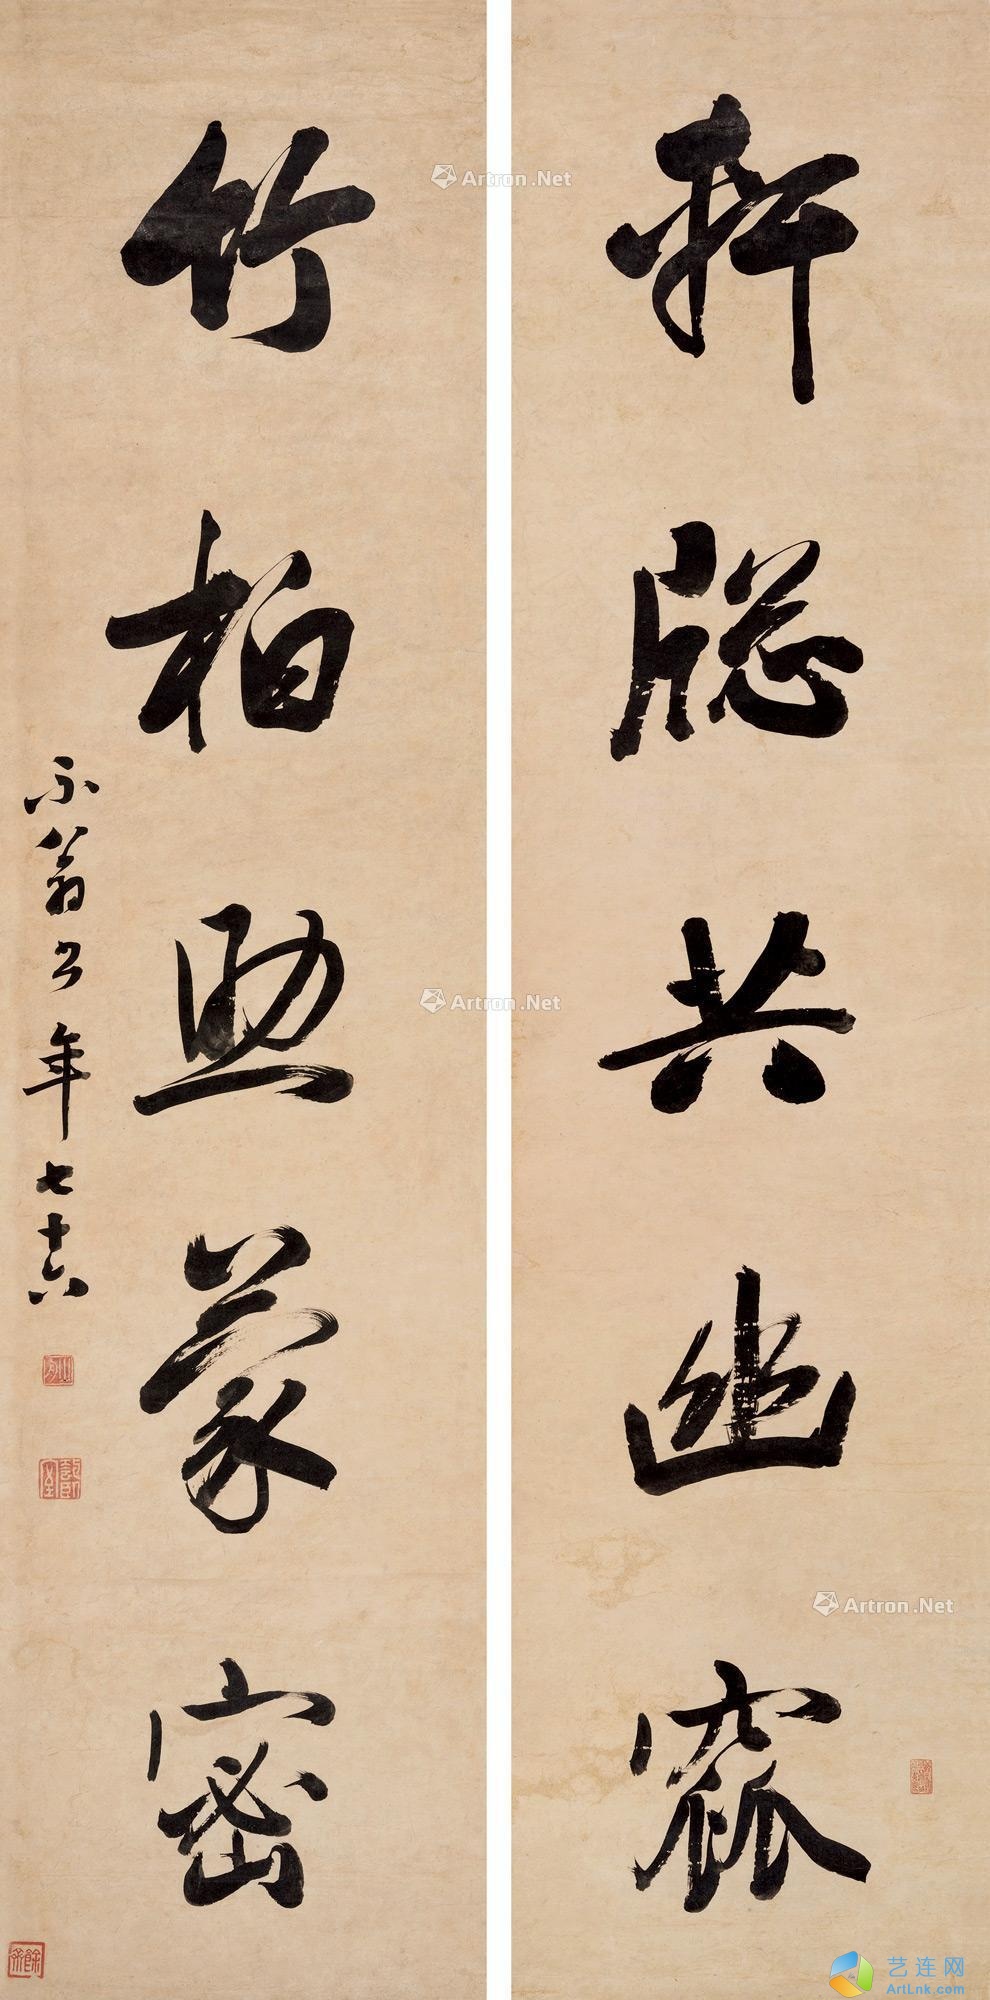 軒牕共幽
竹柏助蒙密
不翁書年七十六
Artron.Net
Artron.Net
Artron.Net
艺连网
ArtLnk.com